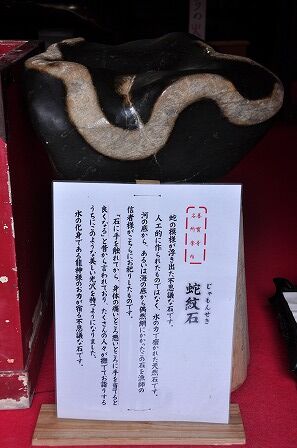 じゃもんせき
蛇紋石
蛇の模様が浮き出た不思議な石です。
人工的に作られたものではなく、水の力で磨かれた天然石です。
河の底から、あるいは海の底から偶然網にかかったこの石を漁師の
信者様がこちらにお祀りしたものです。
「石に手を触れてから、身体の痛いところ悪いところに手を当てると
良くなる」と昔から言われており、たくさんの人々が撫でてお詣りする
うちにこのような美しい光沢を持つようになりました。
水の化身である龍神様のお力が宿る不思議な石です。